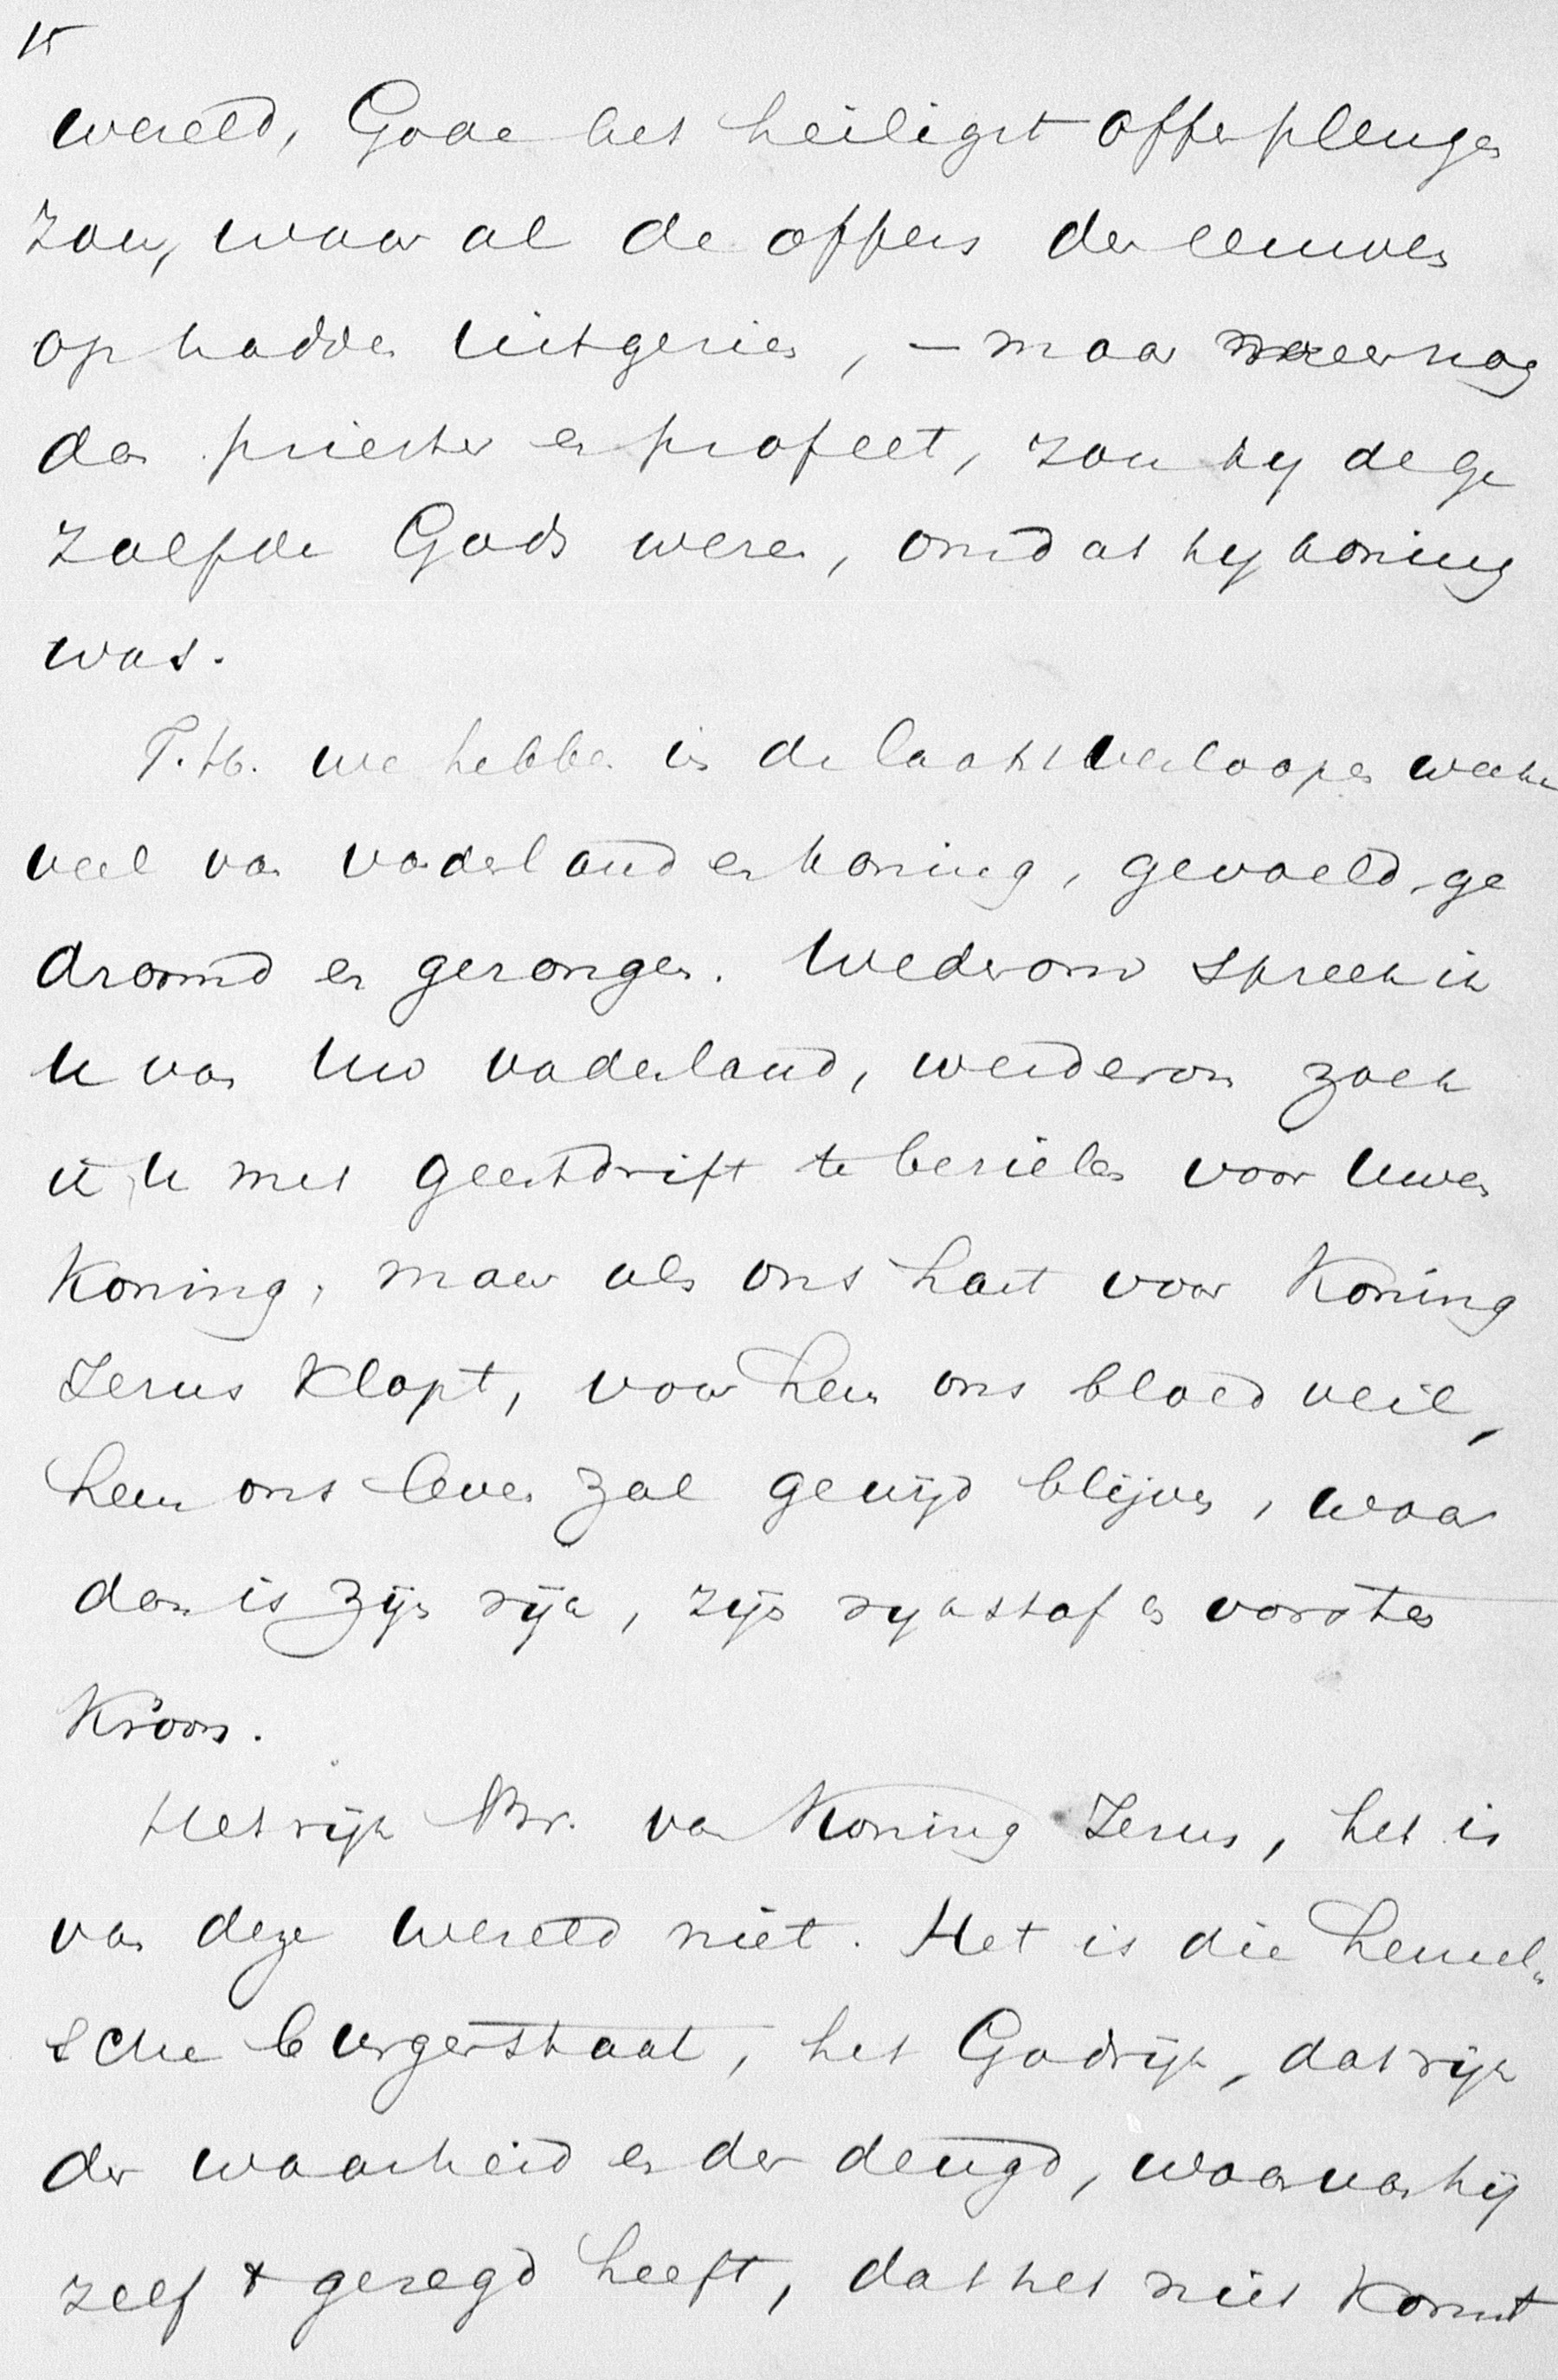 15
wereld, Gode het heiligst offer plengen
zou, waar al de offers der eeuwen
op hadden uitgezien, – maar meer nog
dan priester en profeet, zou hij de ge
zalfde Gods wezen, omdat hij koning
was.
T.H. we hebben in de laatstverloopen weken
veel van vaderland en koning, gevoeld, ge
droomd en gezongen. Wederom spreek ik
U van Uw vaderland, wederom zoek
ik U met geestdrift te bezielen voor Uwen
Koning, maar als ons hart voor Koning
Jezus klopt, voor hem ons bloed veil,
hem ons leven zal gewijd blijven, waar
dan is zijn rijk, zijn rijkstaf en vorsten
Kroon.
Het rijk Br. van Koning Jezus, het is
van deze wereld niet. Het is die hemel„
sche burgerstaat, het Godsrijk, dat rijk
der waarheid en der deugd, waarvan hij
zelf gezegd heeft, dat het niet komt